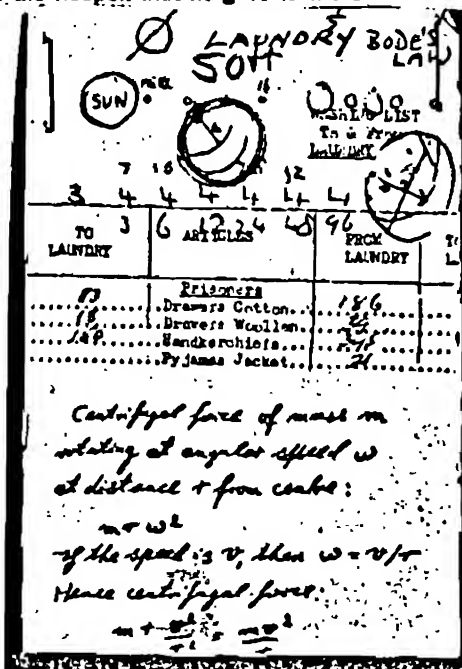 LAUNDRY BODE'S
SOM LAW
SUN
WASHING LIST
To & From
LAUNDRY
7 12
3 4 4 4 4 4 4
3 6 12 24 48 96
TO LAUNDRY
ARTICLES
FROM LAUNDRY
Prisoners
83 Drawers Cotton 186
18 Drawers Woollen
Handkerchiefs
Pyjamas Jacket 21
Centrifugal force of mass m
rotating at angular speed ω
at distance r from centre:
mrω²
If the speed is v, then ω = v/r
Hence centrifugal force:
m r v²/r² = mv²/r